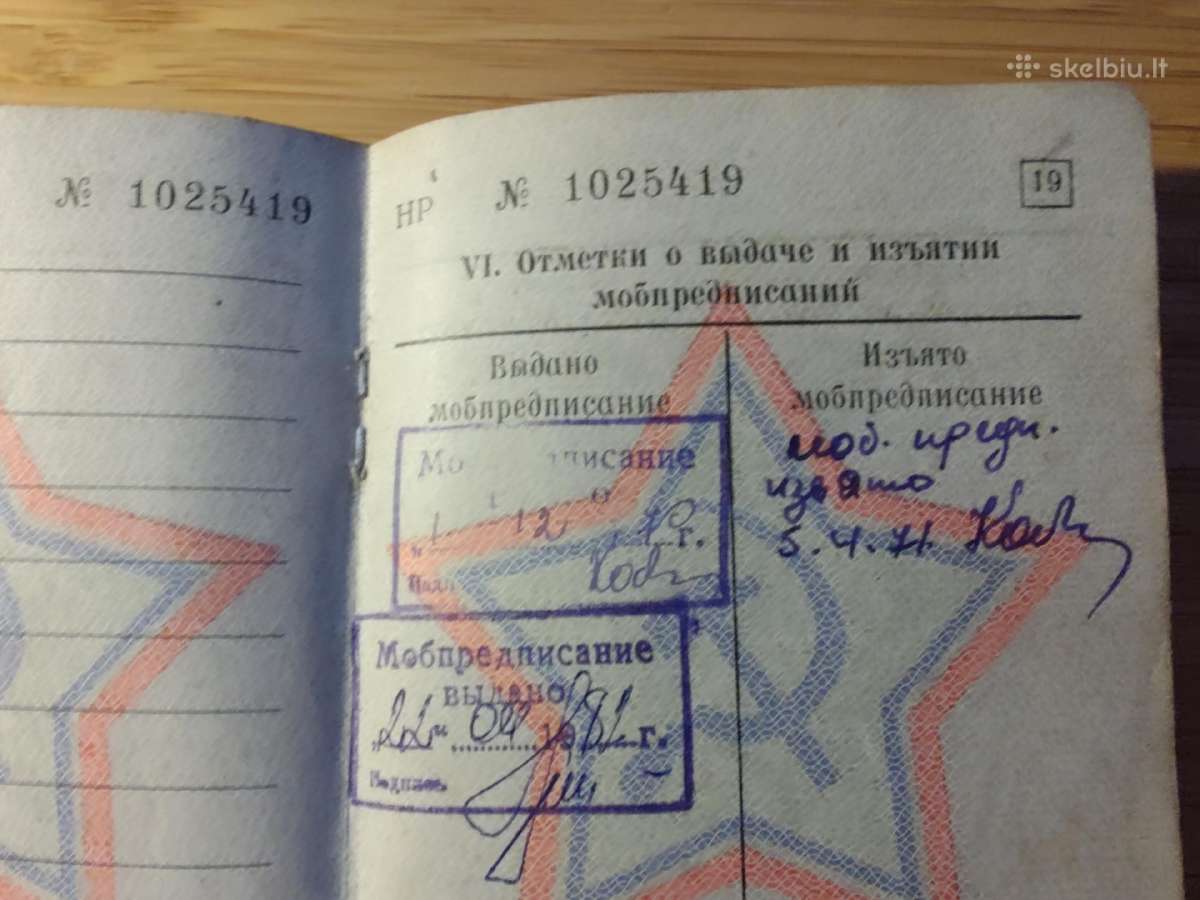 skelbiu.lt
№ 1025419
НР № 1025419 19
VI. Отметки о выдаче и изъятии
мобпредписаний
Выдано
мобпредписание
Изъято
мобпредписание
моб. предп.
изъято
5.4.71.
Мо писание
о
„1 12 70 г.
Мобпредписание
выдано
„22“ 04 1982 г.
Подпись